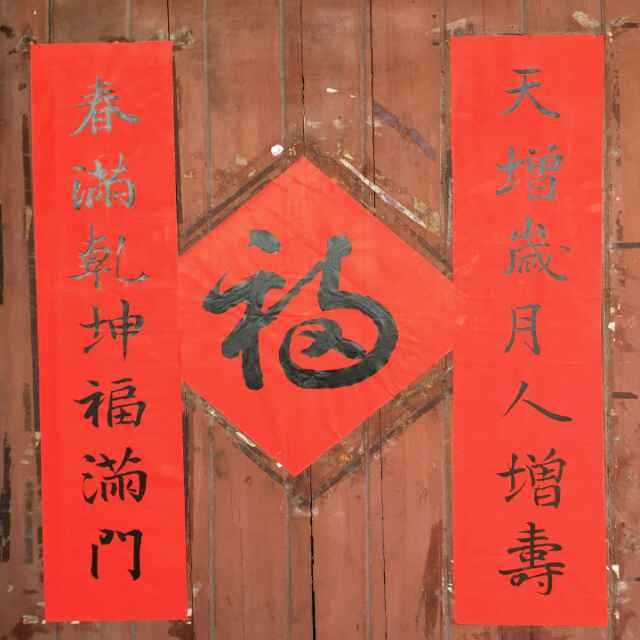 天增歲月人增壽
福
春滿乾坤福滿門